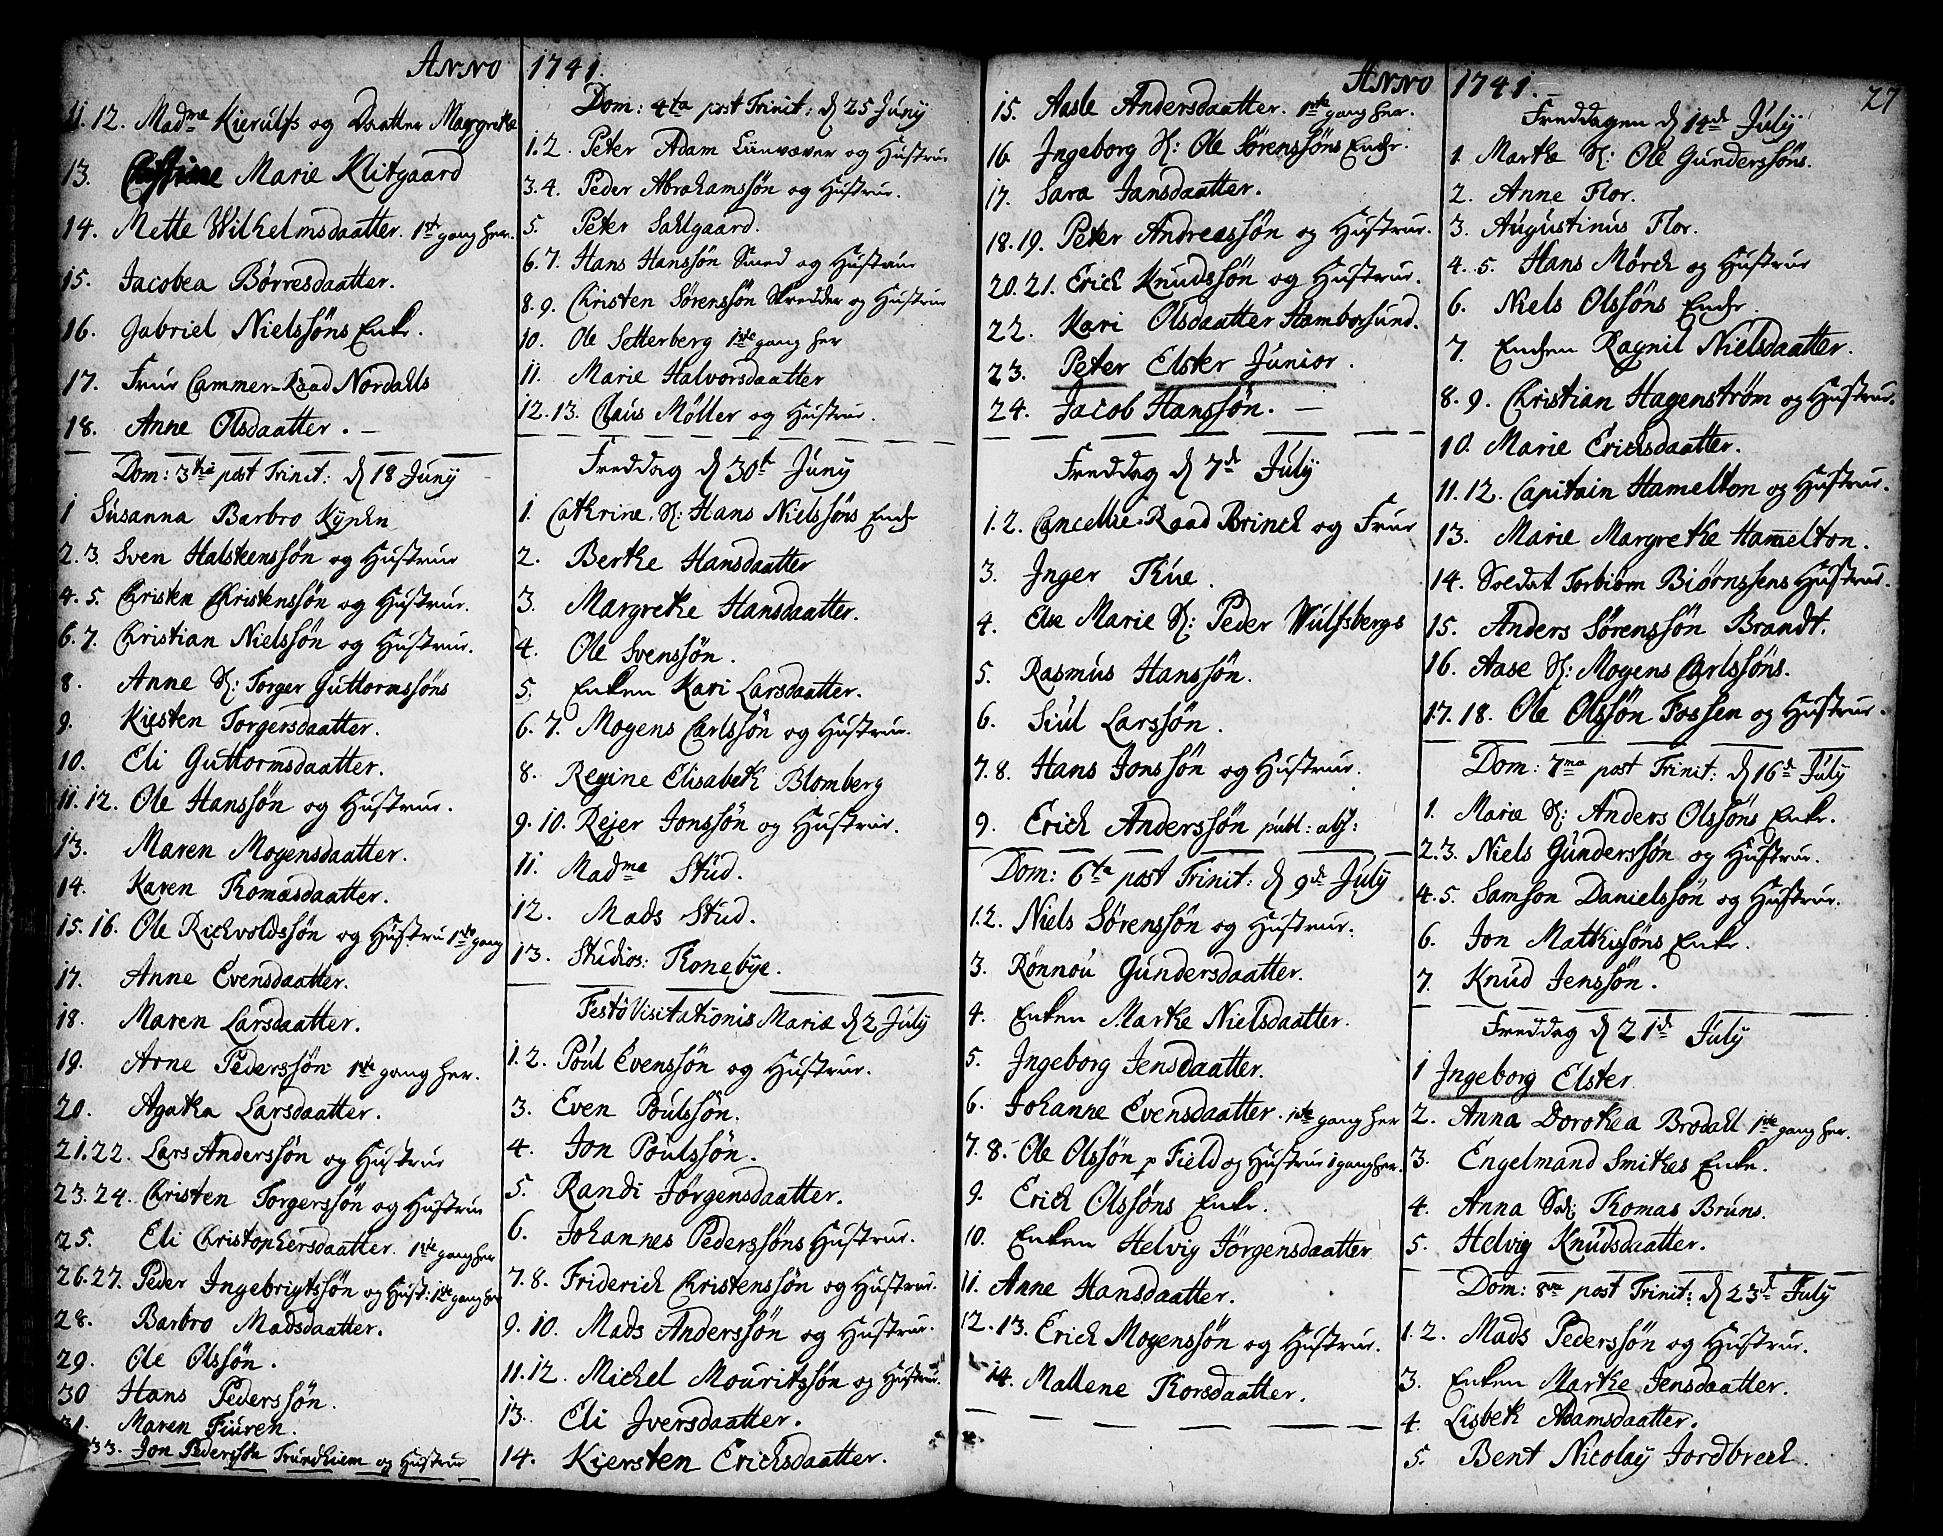 Anno 1741.
11.12. Madme Kierulfs og Daatter Margrethe
13. Marie Klitgaard
14. Mette Wilhelmsdaatter. 1ste gang her.
15. Jacobea Börresdaatter.
16. Gabriel Nielssöns Enke.
17. Frur Cammer-Raad Nordahls
18. Anne Olsdaatter. —
Dom: 3tia post Trinit: d 18 Junij
1 Susanna Barbro
2.3. Sven Halstenssön og Hustrur
4.5. Christen Christenssön og Hustrur.
6.7. Christian Nielssön og Hustrur.
8. Anne S: Torger Guttormssöns
9. Kiesten Torgersdaatter.
10. Eli Guttormsdaatter.
11.12. Ole Hanssön og Hustrur.
13. Maren Mogensdaatter.
14. Karen Thomasdaatter.
15.16. Ole Richvoldssön og Hustru 1ste gang
17. Anne Evensdaatter.
18. Maren Larsdaatter.
19. Arne Pederssön 1ste gang her.
20. Agatha Larsdaatter.
21.22. Lars Anderssön og Hustrur
23.24. Christen Torgerssön og Hustrur
25. Eli Christophersdaatter. 1ste gang her
26.27. Peder Ingebrigtssön og Hust: 1ste gang her
28. Barbro Madsdaatter.
29. Ole Olssön.
30 Hans Pederssön.
31. Maren Fiuren.
33. Jon Pederssön Trundhiem og Hustrur
Dom: 4ta post Trinit: d 25 Junij
1.2. Peter Adam Linvæver og Hustrur
3.4. Peder Abrahamssön og Hustrur.
5. Peter Sahlgaard.
6.7. Hans Hanssön Smed og Hustrur
8.9. Christen Sörenssön Skredder og Hustrur
10. Ole Setterberg 1ste gang her
11. Marie Halvorsdaatter
12.13. Claus Möller og Hustrur.
Freddag d 30t Junij
1. Cathrine, S: Hans Nielssöns Enche
2. Berthe Hansdaatter
3. Margrethe Hansdaatter.
4. Ole Svenssön.
5. Enken Kari Larsdaatter.
6.7. Mogens Carlssön og Hustrur.
8. Regine Elisabeth Blomberg
9.10. Rejer Jonssön og Hustrur.
11. Madme Stud.
12. Mads Stud.
13. Studios: Thonebye.
Festo Visitationis Mariæ d 2 July
1.2. Poul Evenssön og Hustrur.
3. Even Poulssön.
4. Jon Poulssön.
5. Randi Jörgensdaatter.
6. Johannes Pederssöns Hustrur.
7.8. Friderich Christenssön og Hustrur.
9.10. Mads Anderssön og Hustrur.
11.12. Michel Mouritssön og Hustrur.
13. Eli Jversdaatter.
14. Kiersten Erichsdaatter.
Anno 1741. —
27
15. Aasle Andersdaatter. 1ste gang her.
16. Jngeborg S: Ole Sörenssöns Enche.
17. Sara Jansdaatter.
18.19. Peter Andreassön og Hustrur.
20.21. Erich Knudssön og Hustrur.
22. Kari Olsdaatter Hamborsund.
23. Peter Elster Junior.
24. Jacob Hanssön. —
Freddag d 7de July
1.2. Cancellie-Raad Brinch og Frur
3. Jnger Thue.
4. Else Marie S: Peder Wulfsbergs
5. Rasmus Hanssön.
6. Siul Larssön.
7.8. Hans Jonssön og Hustrur.
9. Erich Anderssön publ: abs:
Dom: 6ta post Trinit: d 9de July
1.2. Niels Sörenssön og Hustrur.
3. Rönnou Gundersdaatter.
4. Enken Marthe Nielsdaatter.
5. Jngeborg Jensdaatter.
6. Johanne Evensdaatter. 1ste gang her
7.8. Ole Olssön p Field og Hustrur 1 gang her.
9. Erich Olssöns Enke.
10. Enken Helvig Jörgensdaatter
11. Anne Hansdaatter.
12.13. Erich Mogenssön og Hustrur.
14. Mallene Thorsdaatter.
Freddagen d 14de July
1. Marthe S: Ole Gunderssöns.
2. Anne Flor.
3. Augustinus Flor.
4.5. Hans Mörch og Hustrur
6. Niels Olssöns Enche
7. Enchen Ragnil Nielsdaatter.
8.9. Christian Hagenström og Hustrur.
10. Marie Erichsdaatter.
11.12. Capitain Hamelton og Hustrur.
13. Marie Margrethe Hammelton.
14. Soldat Torbiörn Biörnssens Hustrur.
15. Anders Sörenssön Brandt.
16. Aase S: Mogens Carlssöns.
17.18. Ole Olssön Fossen og Hustrur.
Dom: 7ma post Trinit: d 16de July
1. Marie S: Anders Olssöns Enke.
2.3. Niels Gunderssön og Hustrur.
4.5. Samson Danielssön og Hustrur.
6. Jon Mathissöns Enke.
7. Knud Jenssön.
Freddag d 21de July
1 Jngeborg Elster
2. Anna Dorothea Brodahl 1ste gang her.
3. Engelmand Smithes Enke.
4. Anna Thomas Bruns.
5. Helvig Knudsdaatter.
Dom: 8va post Trinit: d 23de July
1.2. Mads Pederssön og Hustrur.
3. Enken Marthe Jensdaatter.
4. Lisbeth Adamsdaatter.
5. Bent Nicolay Jordbrech.